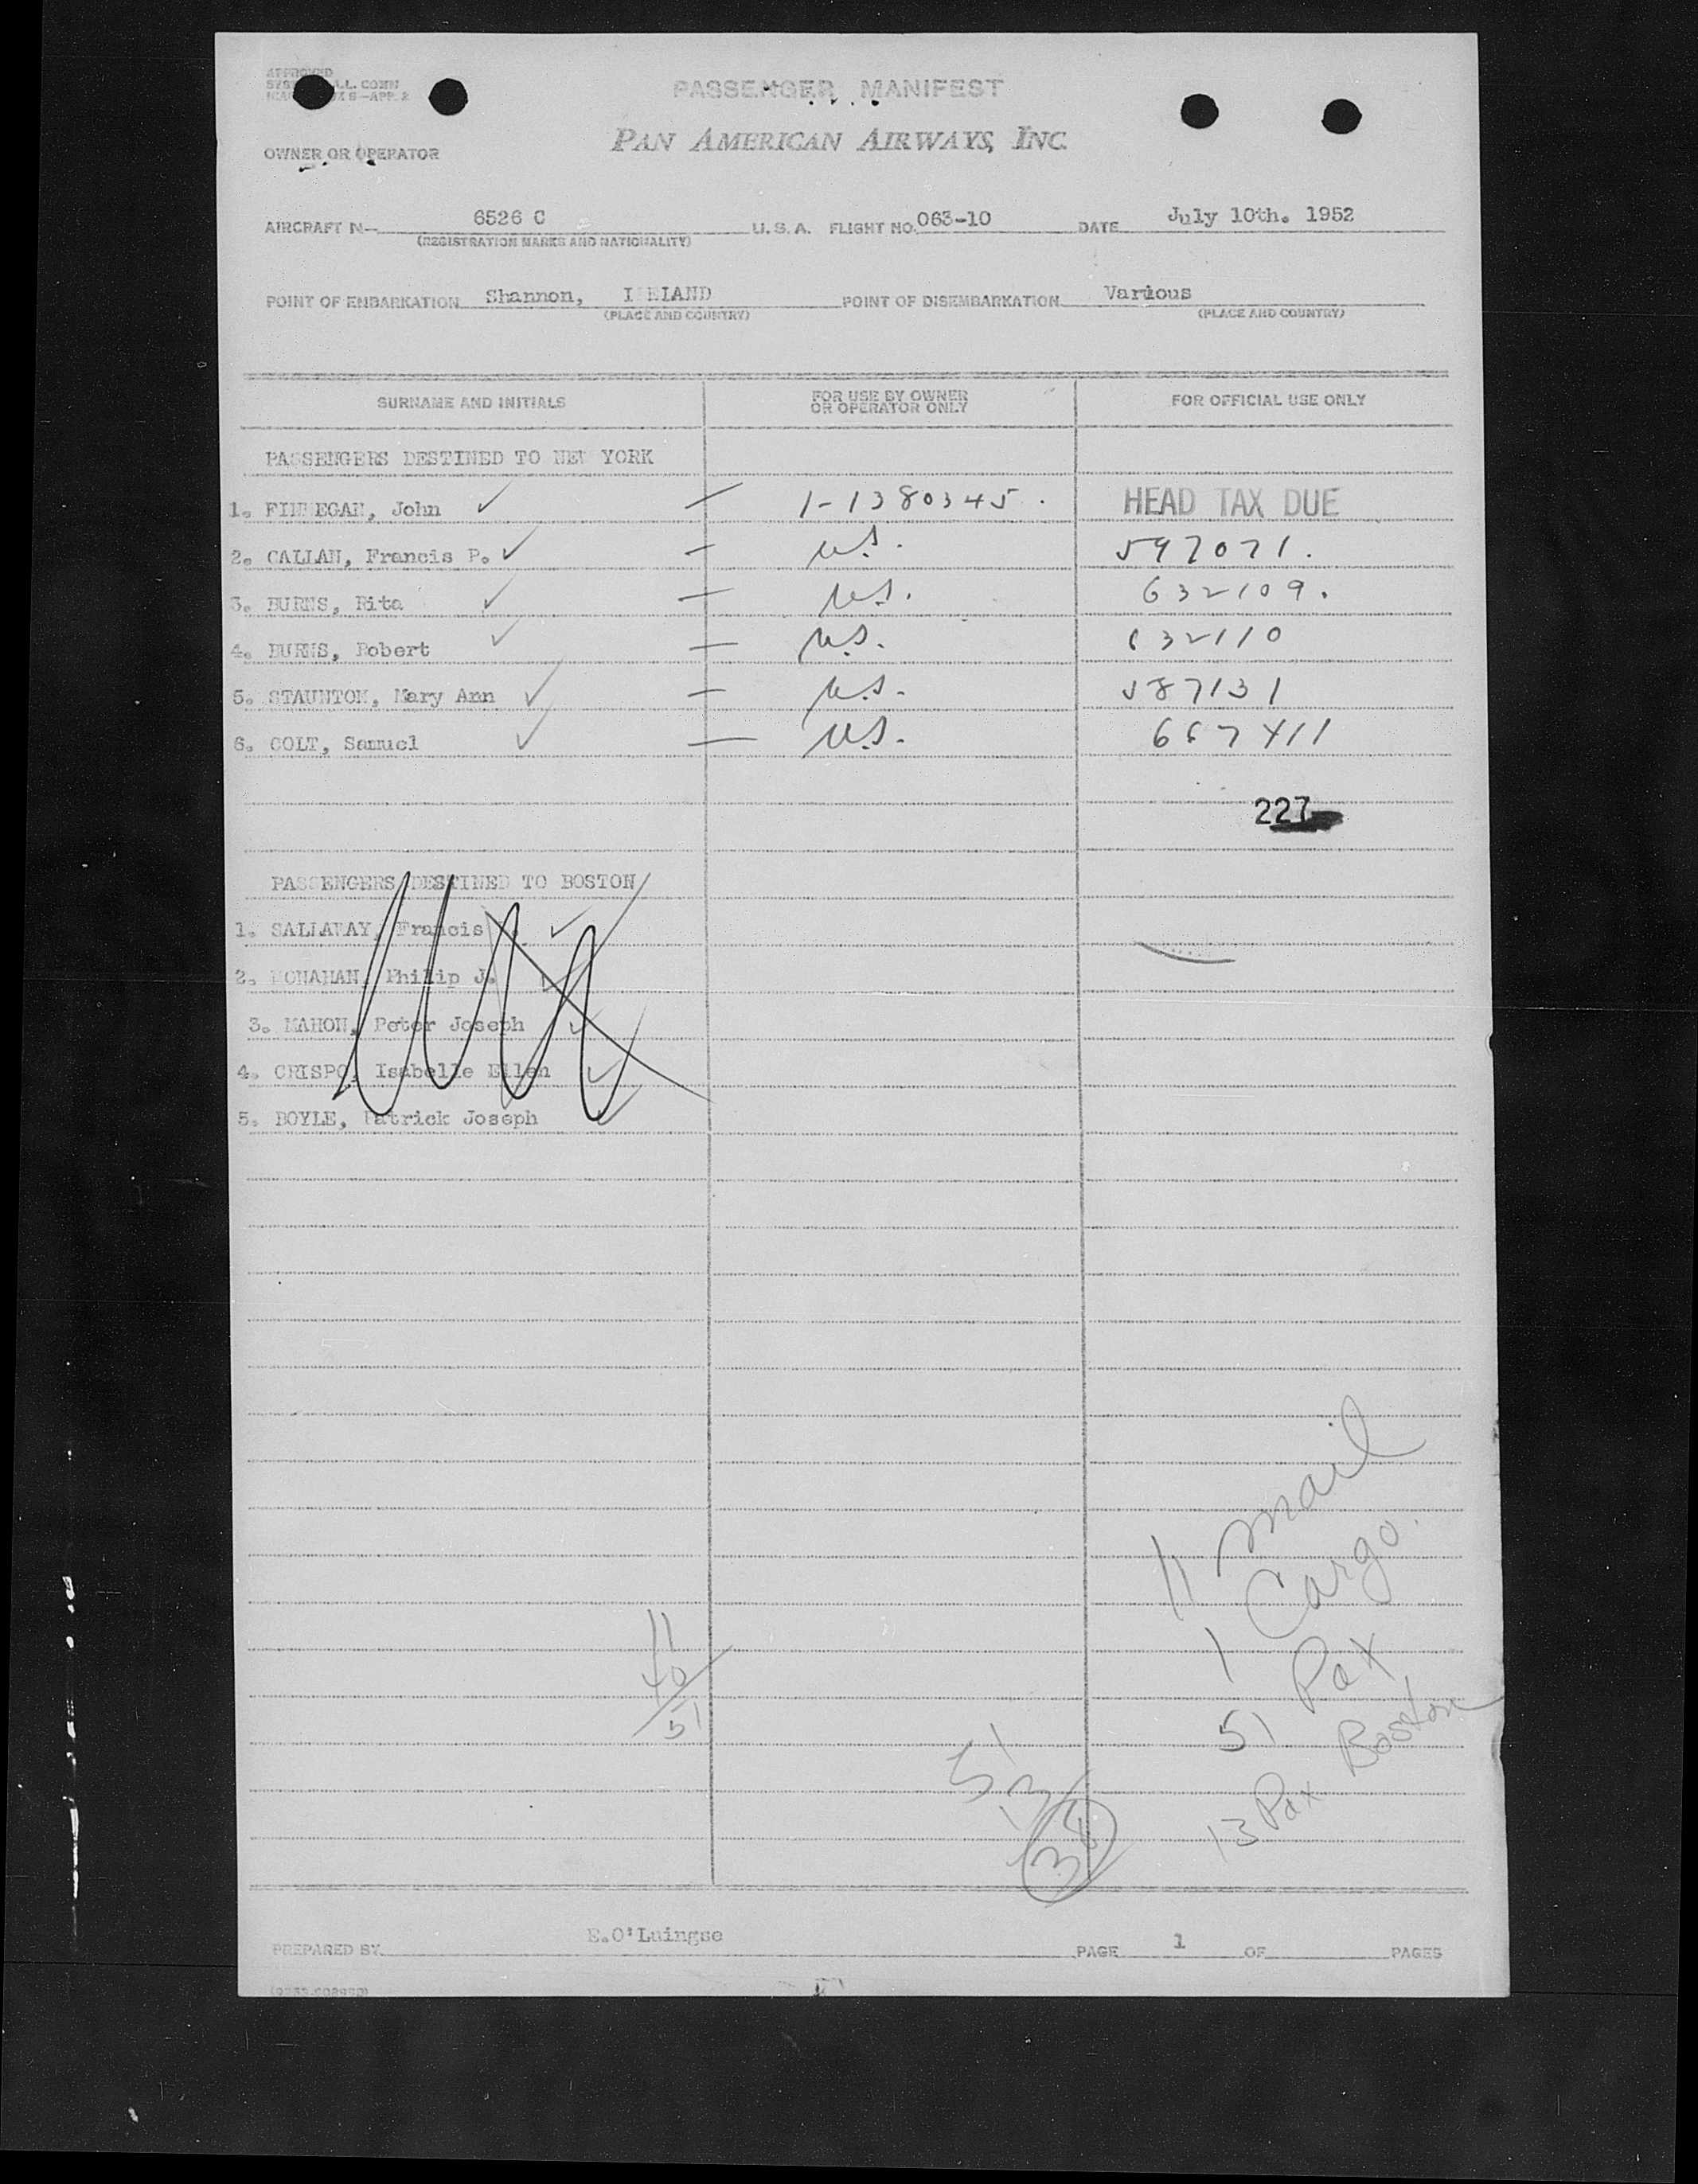 APPROVED
PASSENGER MANIFEST
PAN AMERICAN AIRWAYS, INC.
OWNER OR OPERATOR
AIRCRAFT N- 6526 C U.S.A. FLIGHT NO. 063-10 DATE July 10th. 1952
(REGISTRATION MARKS AND NATIONALITY)
POINT OF EMBARKATION Shannon, I ELAND POINT OF DISEMBARKATION Various
(PLACE AND COUNTRY) (PLACE AND COUNTRY)
SURNAME AND INITIALS FOR USE BY OWNER OR OPERATOR ONLY FOR OFFICIAL USE ONLY
PASSENGERS DESTINED TO NEW YORK
1. FINNEGAN, John 1-1380345. HEAD TAX DUE
2. CALLAN, Francis P. U.S. 597071.
3. BURNS, Rita U.S. 632109.
4. BURNS, Robert U.S. 632110
5. STAUNTON, Mary Ann U.S. 587131
6. COLT, Samuel U.S. 667411
227
PASSENGERS DESTINED TO BOSTON
1. SALLAWAY, Francis
2. MONAHAN, Philip J.
3. MAHON, Peter Joseph
4. CRISPO, Isabelle Ellen
5. BOYLE, Patrick Joseph
11 mail
1 Cargo.
51 Pax
13 Pax Boston
11
40
51
51
13
38
PREPARED BY E.O'Luingse PAGE 1 OF PAGES